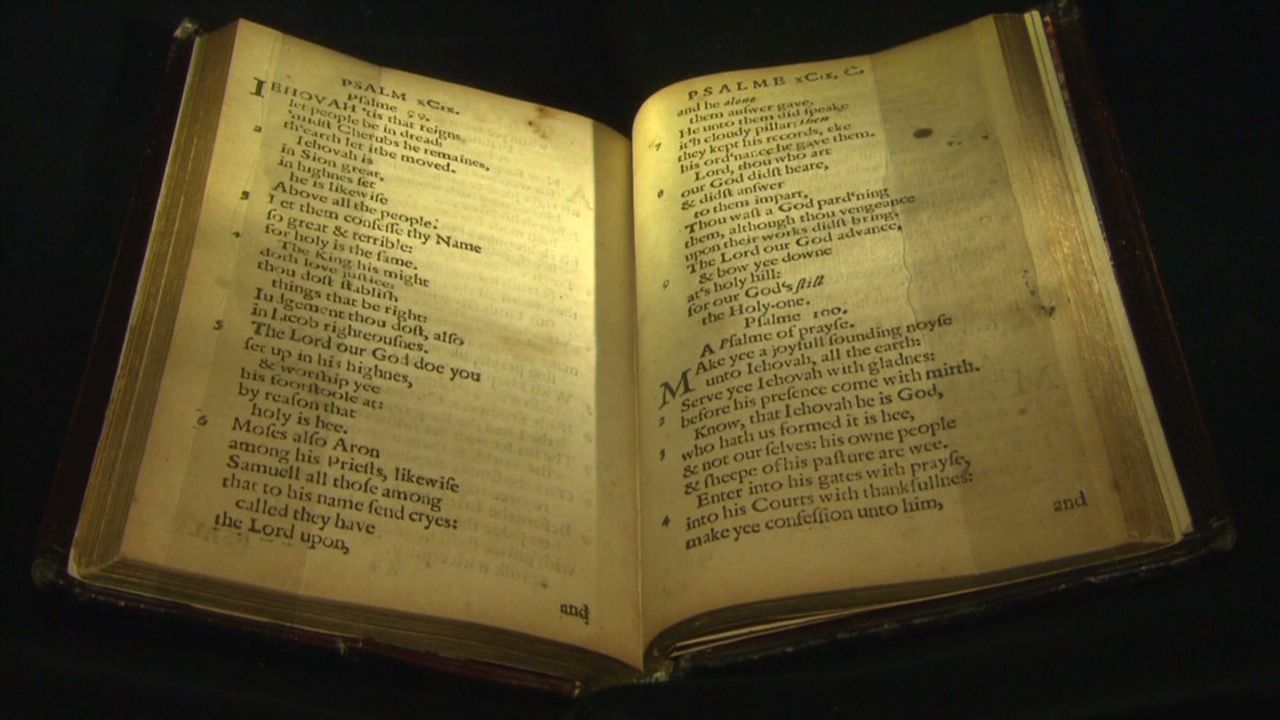 PSALM xCIx.
Pſalme 99.
IEHOVAH 'tis that reigns,
let people be in dread:
'midſt Cherubs he remaines,
th'earth let it be moved.
2 Iehovah is
in Sion great,
in highnes ſet
he is likewiſe
Above all the people:
3 Let them confeſſe thy Name
ſo great & terrible:
for holy is the ſame.
4 The King his might
doth love juſtice:
thou doſt ſtabliſh
things that be right:
Iudgement thou doſt, alſo
in Iacob righteouſnes.
5 The Lord our God doe you
ſet up in his highnes,
& worſhip yee
his footſtoole at:
by reaſon that
holy is hee.
6 Moſes alſo Aron
among his Prieſts, likewiſe
Samuell all thoſe among
that to his name ſend cryes:
called they have
the Lord upon,
and
PSALME xCIx, C.
and he alone
them anſwer gave.
7 He unto them did ſpeake
it'h cloudy pillar: then
they kept his records, eke
his ord'nance he gave them.
8 Lord, thou who art
our God didſt heare,
& didſt anſwer
to them impart,
Thou waſt a God pard'ning
them, although thou vengeance
upon their works didſt bring.
9 The Lord our God advance,
& bow yee downe
at's holy hill:
for our God's ſtill
the Holy-one.
Pſalme 100.
A Pſalme of prayſe.
MAke yee a joyfull ſounding noyſe
unto Iehovah, all the earth:
2 Serve yee Iehovah with gladnes:
before his preſence come with mirth.
3 Know, that Iehovah he is God,
who hath us formed it is hee,
& not our ſelves: his owne people
& ſheepe of his paſture are wee.
4 Enter into his gates with prayſe,
into his Courts with thankfullnes:
make yee confeſſion unto him,
and